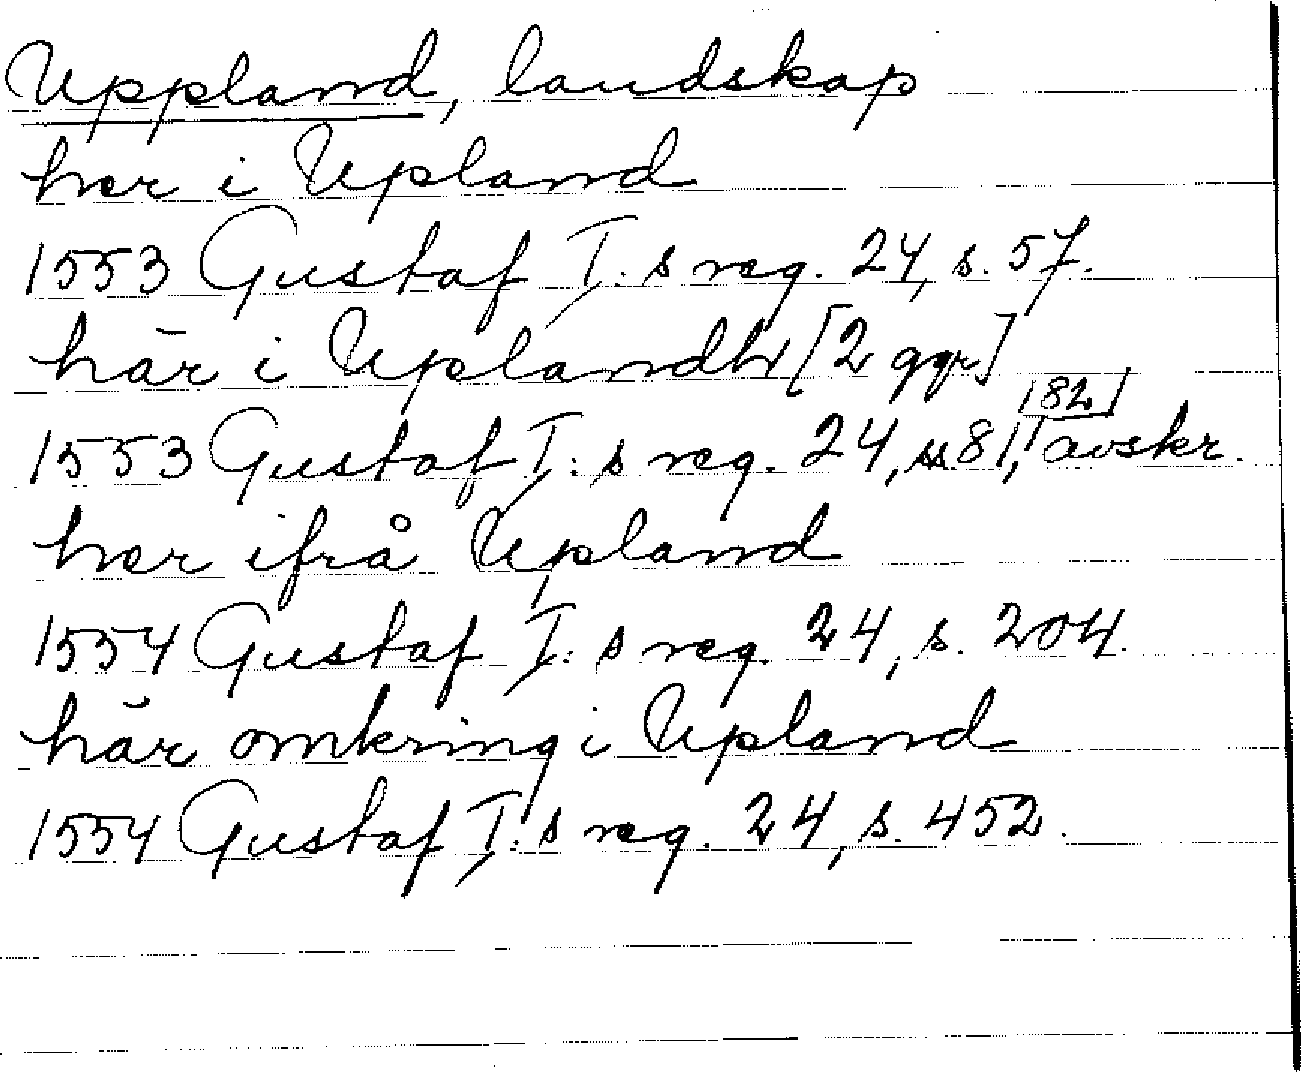 Uppland, landskap
her i Upland
1553 Gustaf I:s reg. 24, s. 57.
här i Uplandh [2 ggr]
1553 Gustaf I:s reg. 24, ss 81, 82, avskr.
her ifrå Upland
1554 Gustaf I:s reg. 24, s. 204.
här omkring i Upland
1554 Gustaf I:s reg. 24, s. 452.